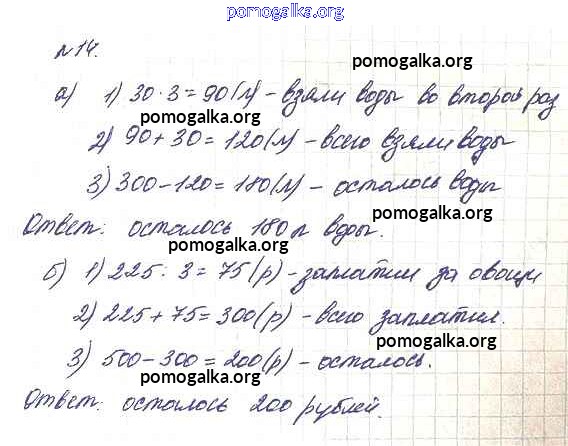 pomogalka.org
№ 14.
pomogalka.org
а) 1) 30 · 3 = 90 (л) - взяли воды во второй раз
pomogalka.org pomogalka.org
2) 90 + 30 = 120 (л) - всего взяли воды
pomogalka.org
3) 300 - 120 = 180 (л) - осталось воды
pomogalka.org
Ответ: осталось 180 л воды.
pomogalka.org
б) 1) 225 : 3 = 75 (р) - заплатил за овощи
pomogalka.org
2) 225 + 75 = 300 (р) - всего заплатил.
pomogalka.org
3) 500 - 300 = 200 (р) - осталось.
pomogalka.org
Ответ: осталось 200 рублей.
pomogalka.org